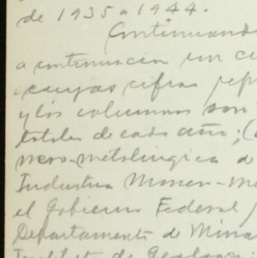 de 1935 a 1944.
Continuando
a continuacion un cu
cuyas cifras rep
y los columnas son
totales de cada año; (
nero-metalúrgica de
Industria Minero-me
el Gobierno Federal
Departamento de Mina
Instituto de Geologia;